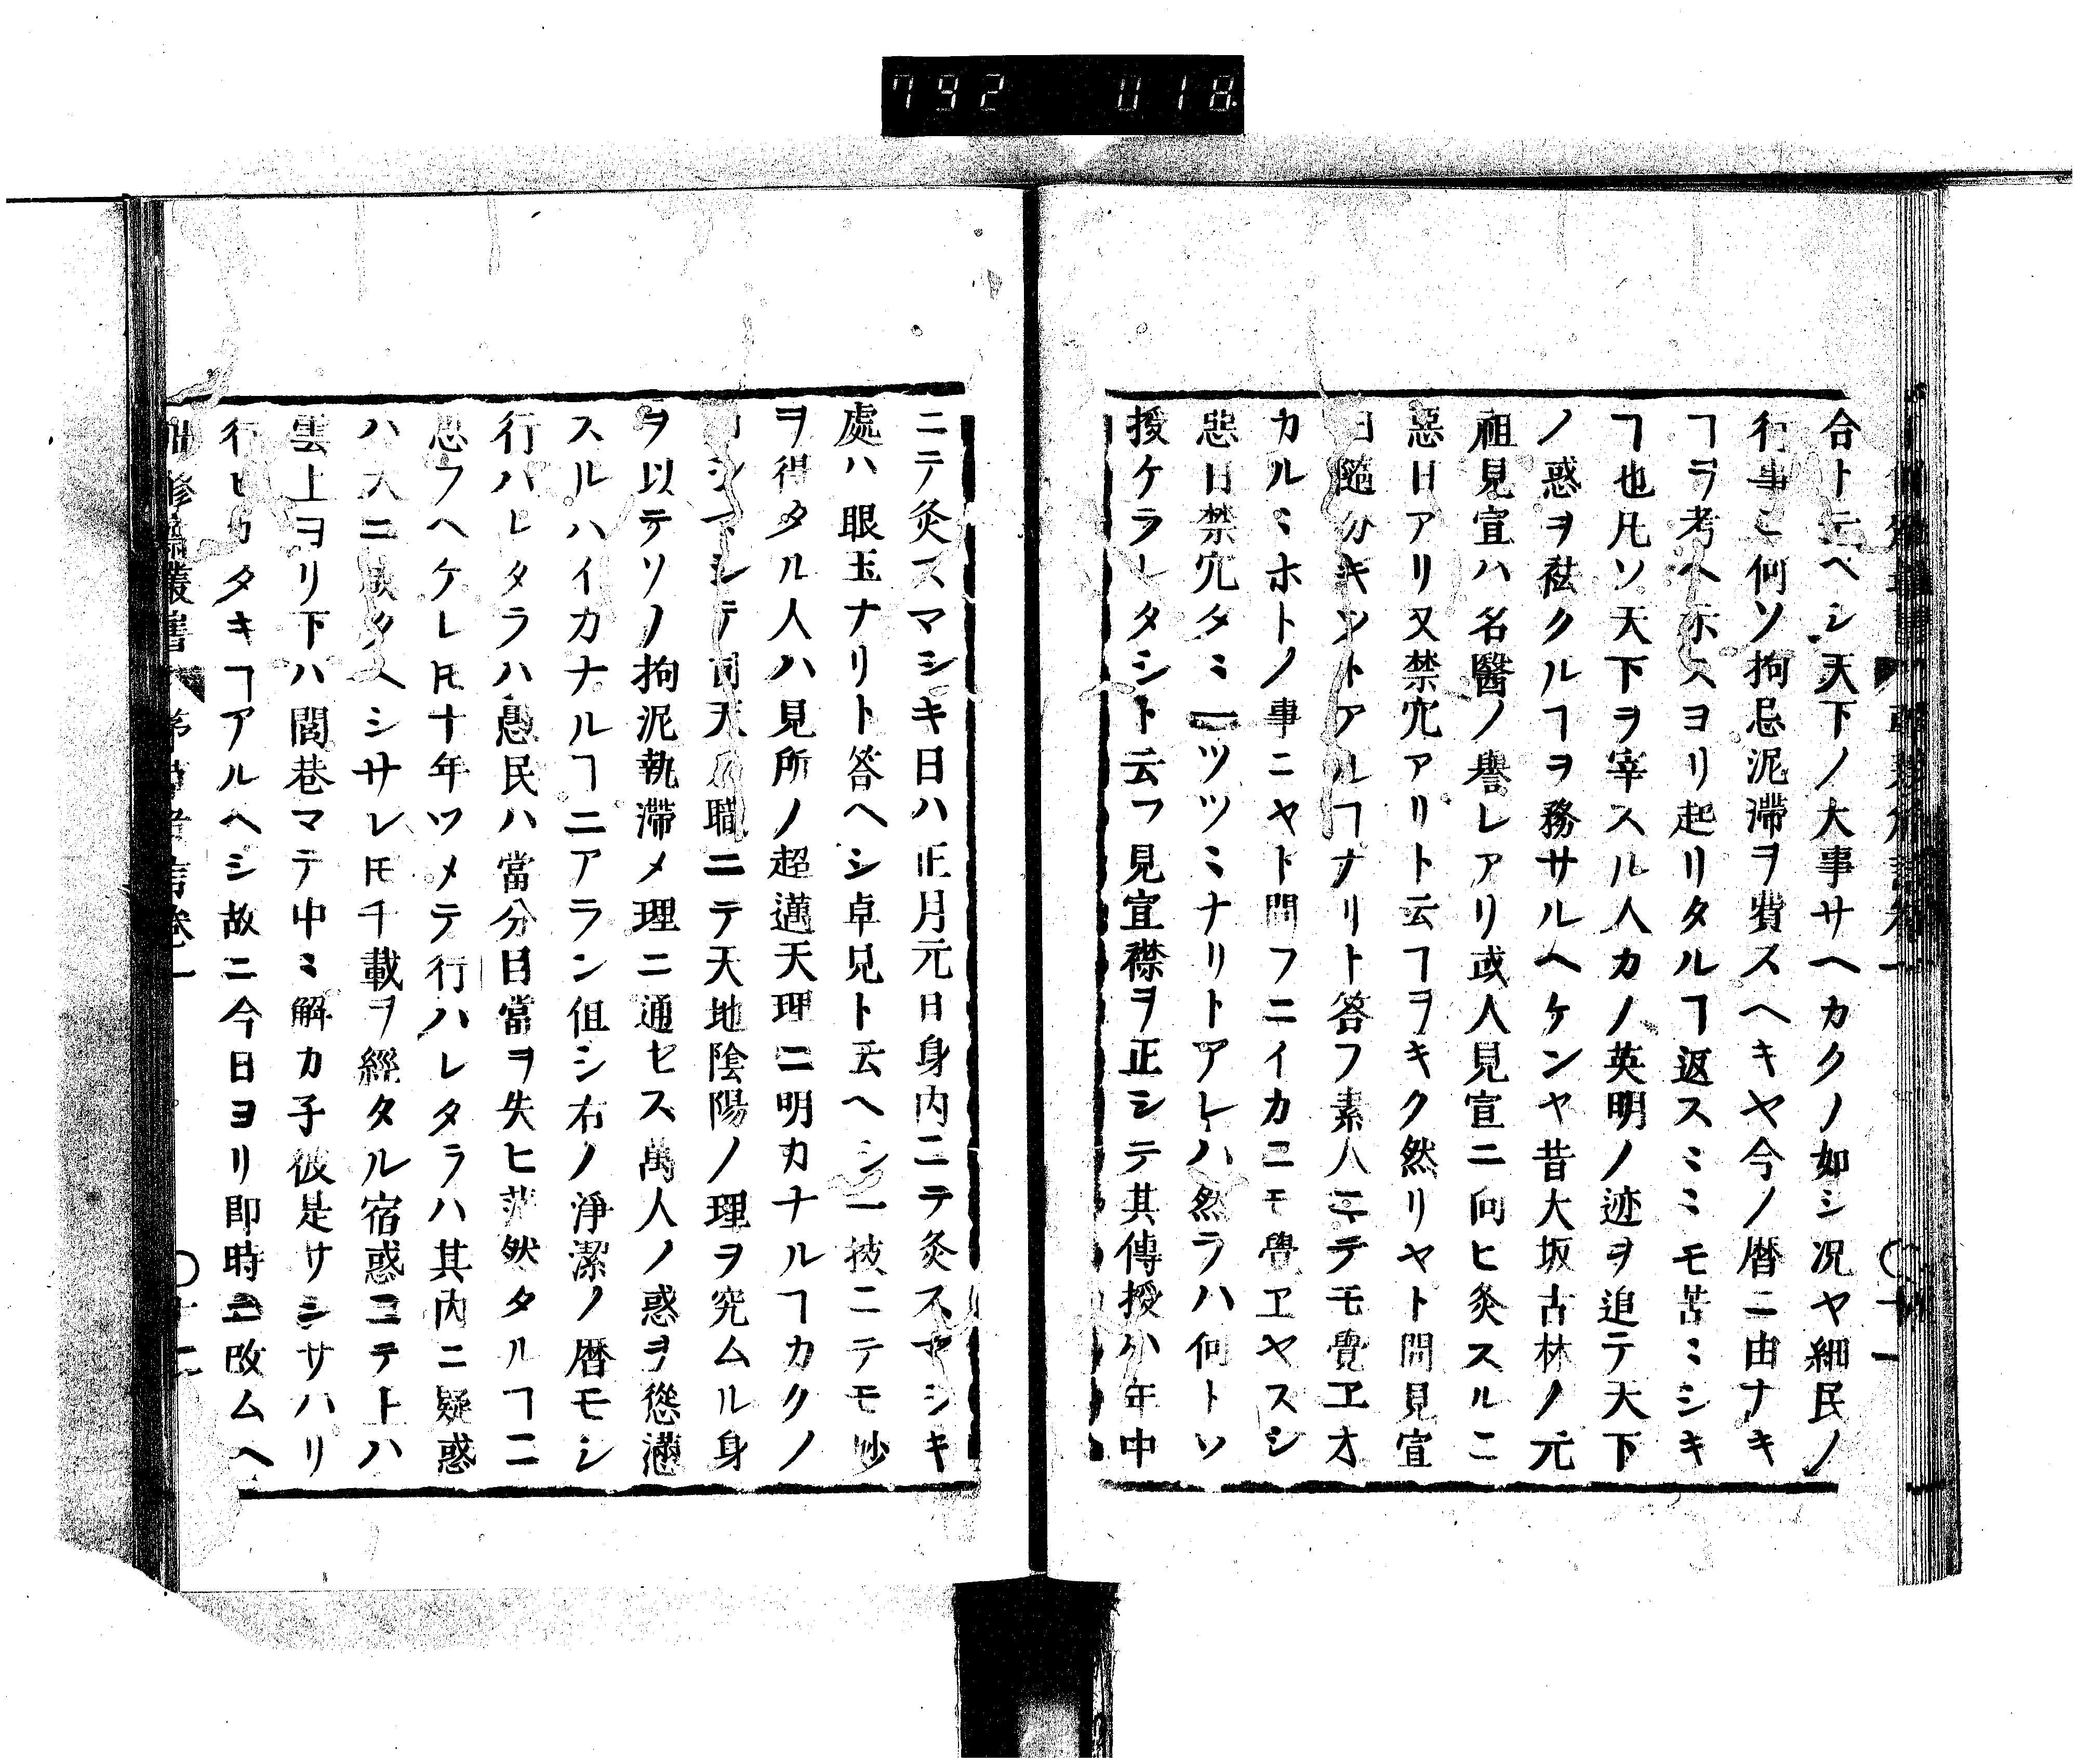 792 018
合ト云ヘシ天下ノ大事サヘカクノ如シ况ヤ細民ノ
行事ミ何ソ拘忌泥滞ヲ費スヘキヤ今ノ暦ニ由ナキ
ヿヲ考ヘ示スヨリ起リタルヿ返スミミモ苦ミシキ
ヿ也凡ソ天下ヲ宰スル人カノ英明ノ迹ヲ追テ天下
ノ惑ヲ祛クルヿヲ務サルヘケンヤ昔大坂古林ノ元
祖見宜ハ名醫ノ譽レアリ或人見宜ニ向ヒ灸スルニ
惡日アリ又禁穴アリト云フヿヲキク然リヤト問見宜
曰隨分キツトアルヿナリト答フ素人ニテモ覺ヱオ
カルミホトノ事ニヤト問フニイカニモ覺ヱヤスシ
惡日禁穴タミ一ツツミナリトアレハ然ラハ何トソ
授ケラレタシト云フ見宜襟ヲ正シテ其傳授ハ年中
ニテ灸スマシキ日ハ正月元日身内ニテ灸スマシキ
處ハ眼玉ナリト答ヘシ卓見ト云ヘシ一技ニテモ妙
ヲ得タル人ハ見所ノ超邁天理ニ明カナルヿカクノ
シテ司天ノ職ニテ天地陰陽ノ理ヲ究ムル身
ヲ以テソノ拘泥執滞メ理ニ通セス萬人ノ惑ヲ慫慂
スルハイカナルヿニアラン伹シ右ノ淨潔ノ暦モシ
行ハレタラハ愚民ハ當分目當ヲ失ヒ茫然タルヿニ
思フヘケレ𪜈十年ツメテ行ハレタラハ其内ニ疑惑
ハ大ニ減クヘシサレ𪜈千載ヲ經タル宿惑ユテトハ
雲上ヨリ下ハ閭巷マテ中ミ解カ子彼是サシサハリ
行ヒカタキヿアルヘシ故ニ今日ヨリ即時ニ改ムヘ